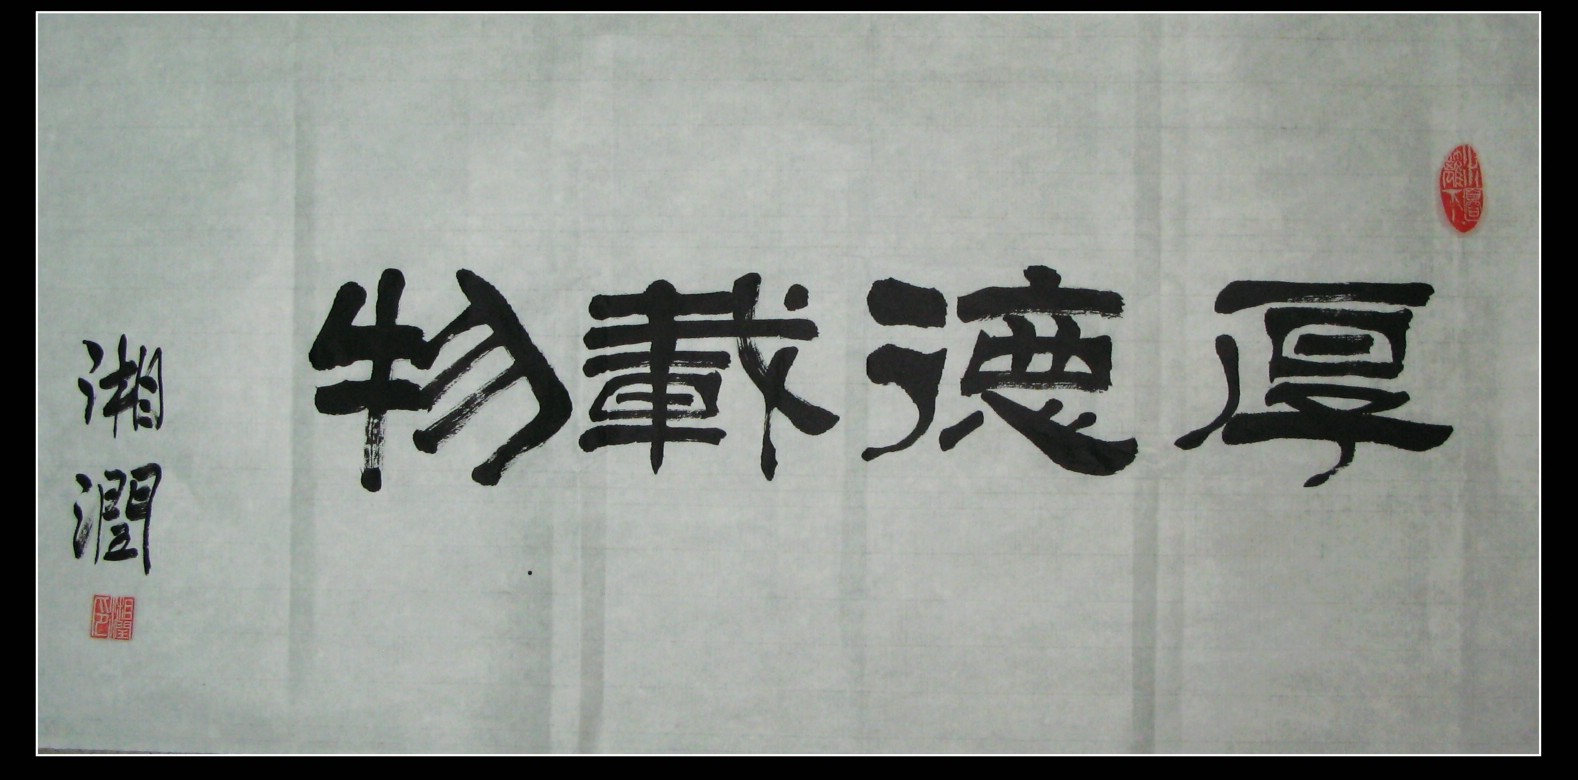 厚德載物
湘潤